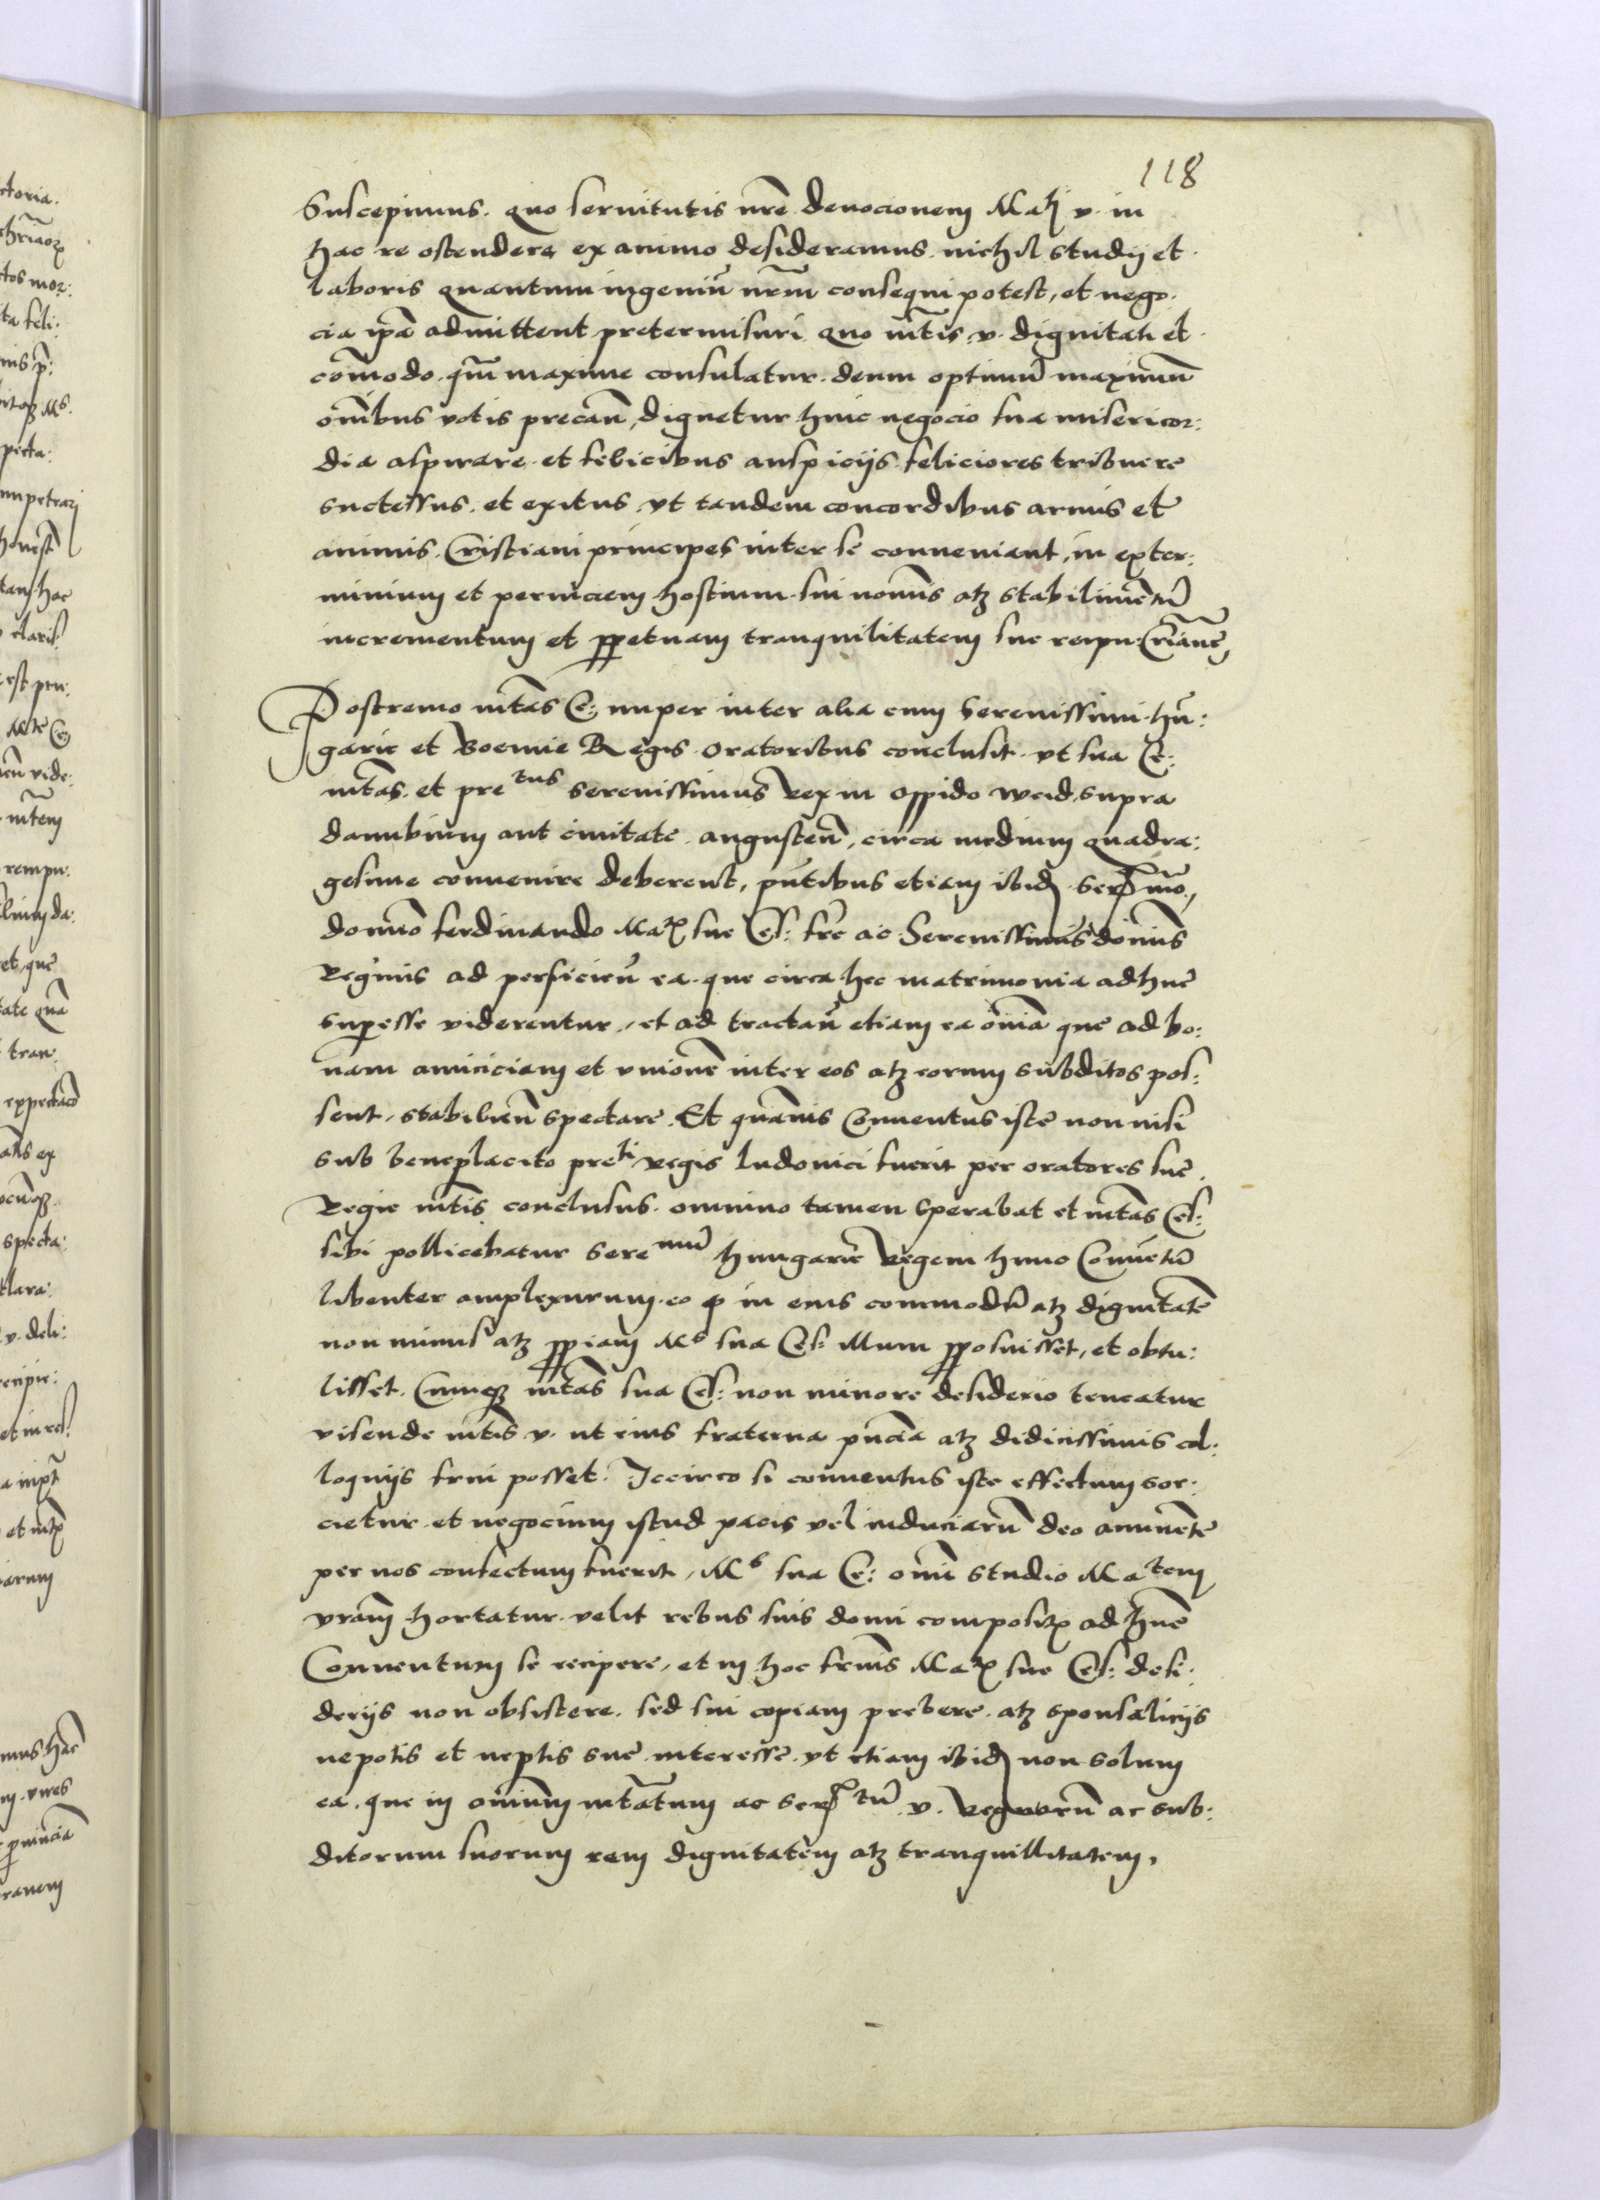 118
Suscepimus. quo seruitutis nr̃e deuocionem Mati v. in
hac re ostendere ex animo desideramus. nichil studij et
laboris quantum ingeniũ nr̃m consequi potest, et nego:
cia ip̃a admittent pretermisuri quo mt̃is v. dignitati et
com̃odo. qm̃ maxime consulatur. deum optimũ maximũ
om̃ibus votis precan̄, dignetur huic negocio sua misericor:
dia aspirare. et felicibus auspicijs feliciores tribuere
successus. et exitus, vt tandem concordibus armis et
animis. Cristiani principes inter se conueniant, in exter:
minium et perniciem hostium sui nominis atq3 stabilimentũ
incrementum et perpetuam tranquilitatem sue reipu. Cr̃iane,
Postremo mt̃as Ce: nuper inter alia cum Serenissimi hũ:
garie et Boemie Regis oratoribus conclusit. vt sua Ce:
mt̃as. et pretus serenissimus Rex in oppido weid, supra
danubium aut ciuitate augusteñ, circa medium quadra:
gesime conuenire deberent, pñtibus etiam ibid. Sermo,
domno ferdinando Mat. sue Ces: fr̃e ac Serenissimis dom̃is
Reginis ad perficieñ ea. que circa hec matrimonia adhuc
superesse viderentur, et ad tractañ etiam ea om̃ia que ad bo:
nam amiciciam et vnionẽ inter eos atq3 eorum subditos pos:
sent, stabilieñ spectare. Et quãuis Conuentus iste non nisi
sub beneplacito preti Regis ludouici fuerit per oratores sue
Regie mt̃is conclusus. omnino tamen sperabat et mt̃as Ces:
sibi pollicebatur Serenmũ hungarie Regem hunc Conuẽtũ
libenter amplexurum. eo ꝙ in eius commodũ atq3 dignitatẽ
non minus atq3 propriam Ms sua Ces: illum proposuisset, et obtu:
lisset. Cumq3 mt̃as sua Ces: non minore desiderio teneatur
visende mt̃is v. ut eius fraterna pñcia atq3 didicissimis col:
loquijs frui posset. Iccirco si conuentus iste effectum sor:
cietur et negocium istud pacis vel induciarũ deo annuentẽ
per nos confectum fuerit, Ms sua Ce: om̃i studio Matem
vr̃am hortatur. velit rebus suis domi composit. ad hunc
Conuentum se recipere, et in hoc fr̃nis Mat. sue Ces: desi:
derijs non obsistere. sed sui copiam prebere. atq3 sponsalicijs
nepotis et neptis sue interesse. vt etiam ibid. non solum
ea. que in om̃ium mt̃atum ac Sertũ v. Regnorũ ac sub:
ditorum suorum rem dignitatem atq3 tranquillitatem,